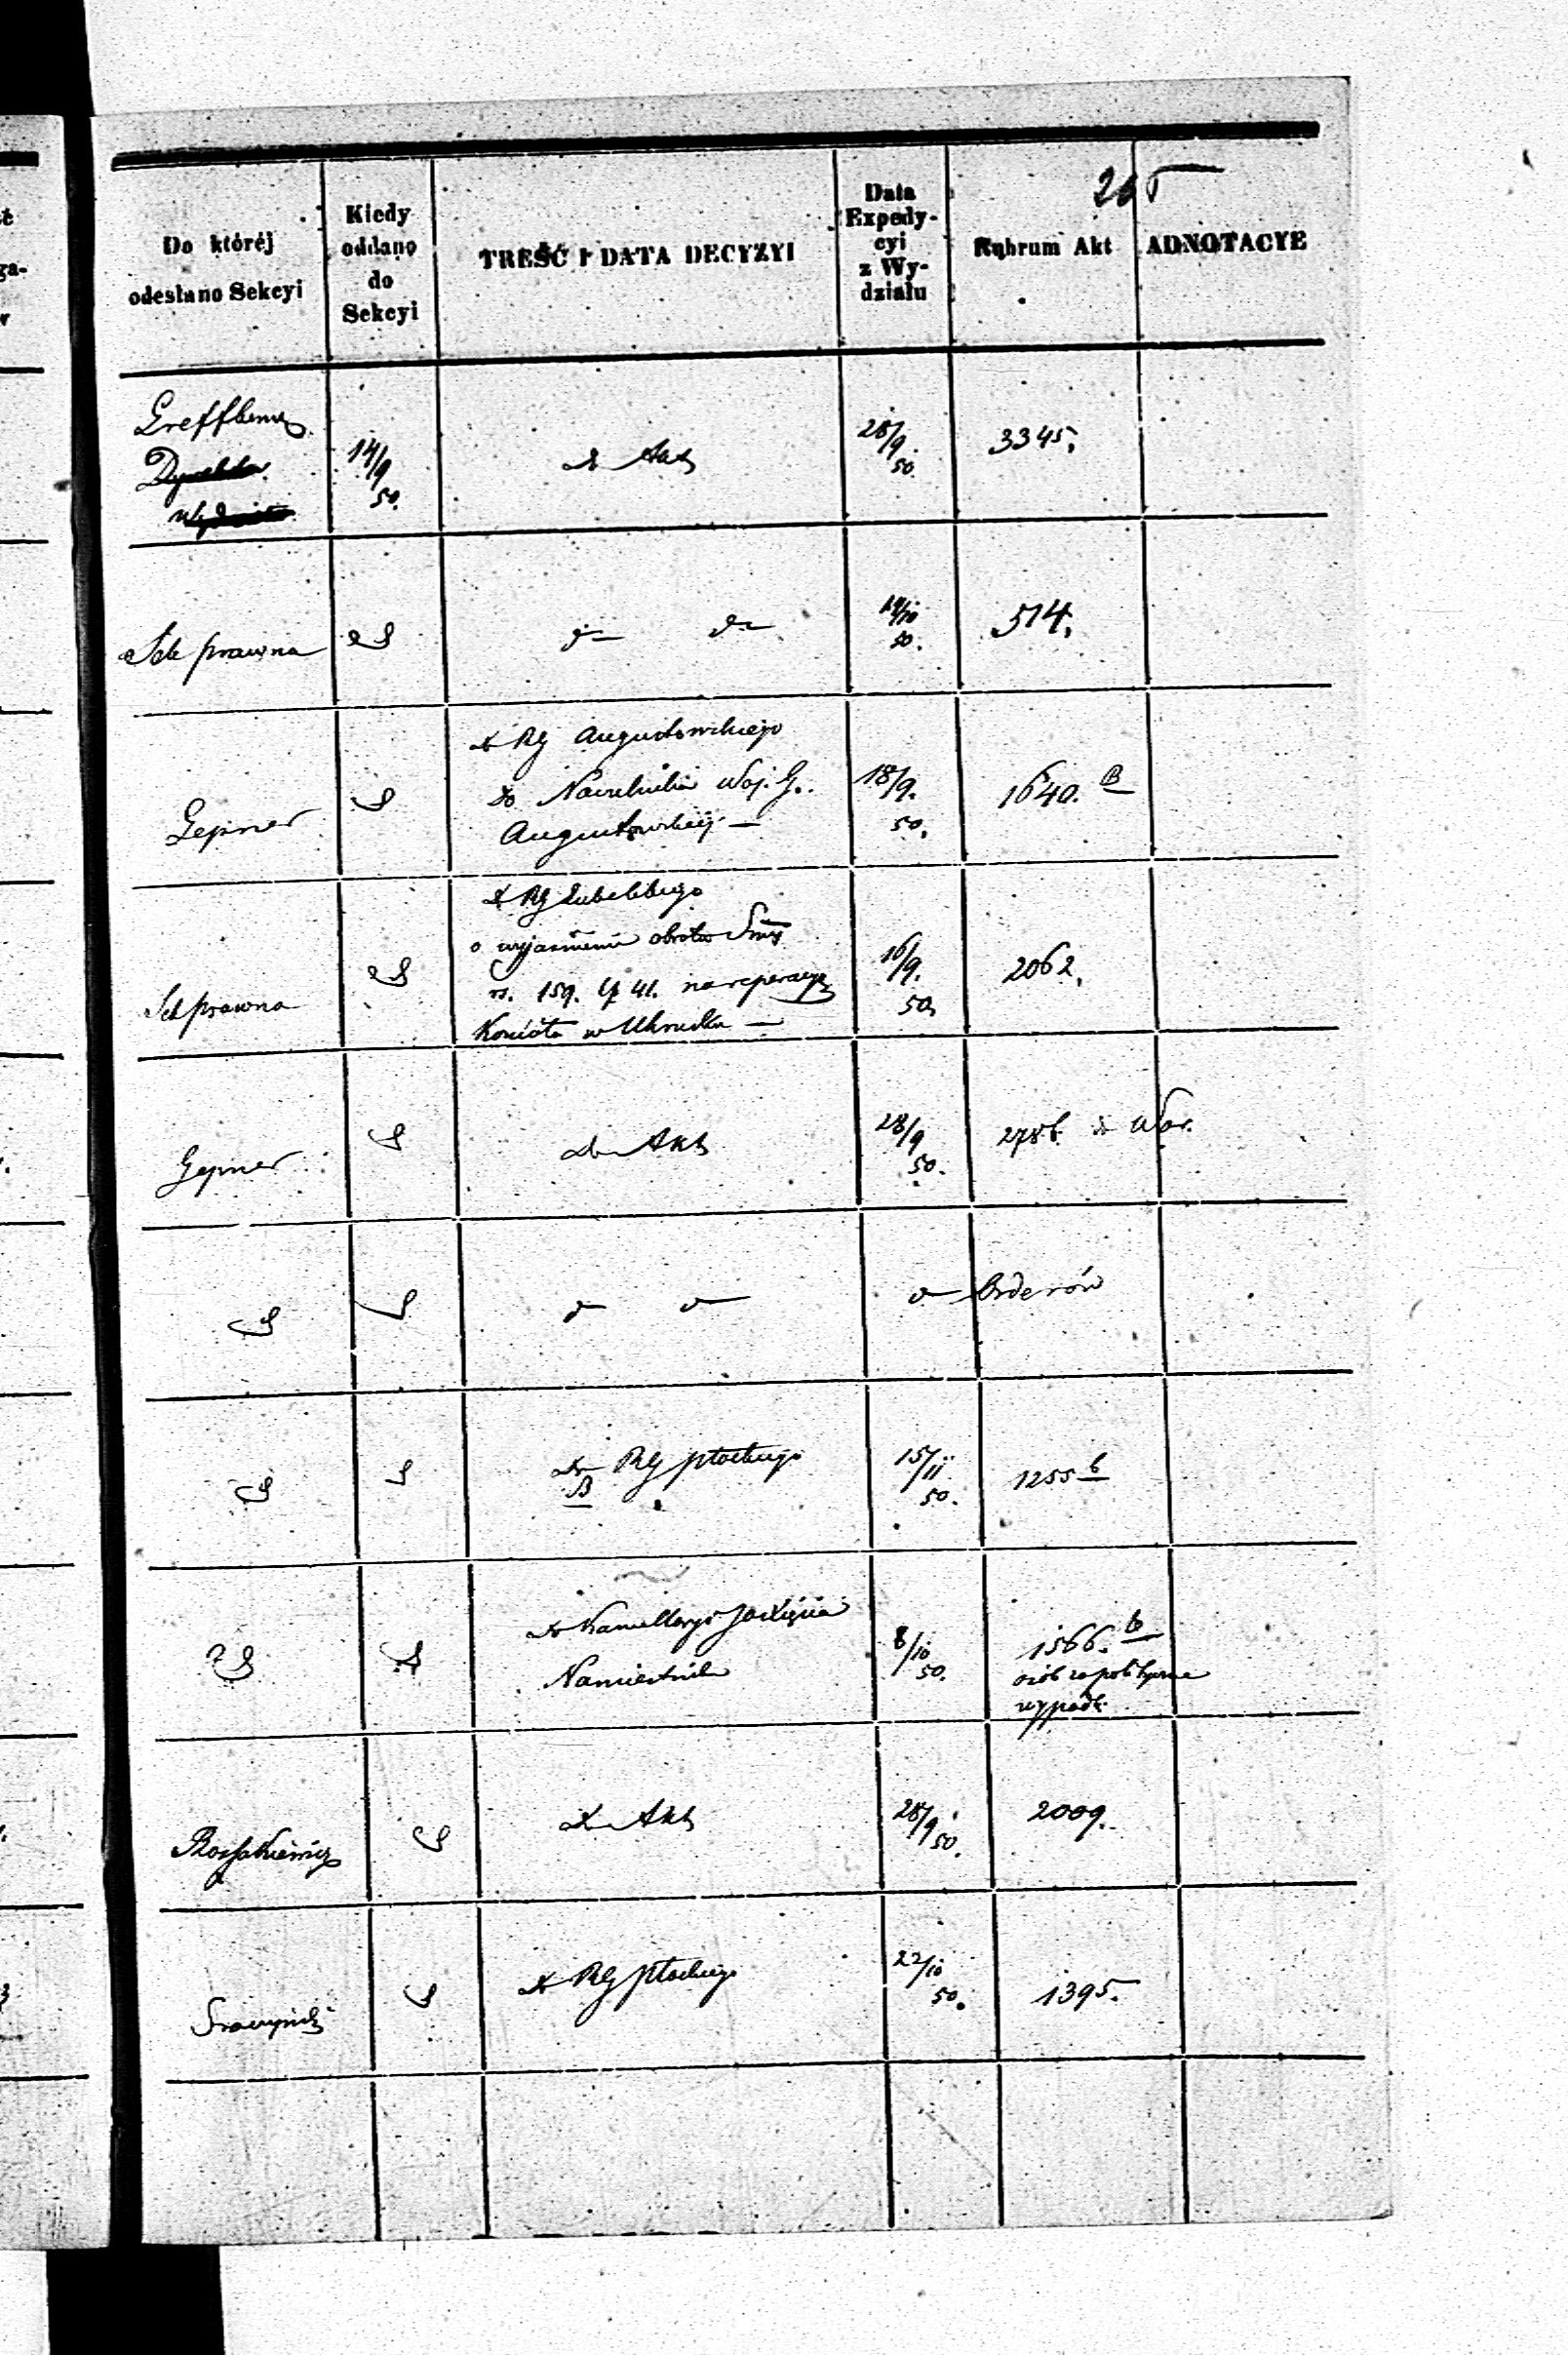 265
Do któréj odesłano Sekcyi
Kiedy oddano do Sekcyi
TREŚĆ I DATA DECYZYI
Data Expedycyi z Wydziału
Rubrum Akt
ADNOTACYE
14/9 50.
do Akt
28/9 50
3345.
Sek prawna
do do
14/10 50.
514.
Gepner
do RG Augustowskiego
do Naczelnika Woj. G.
Augustowskiej —
18/9. 50.
1640. B
Sek prawna
do RG Lubelskiego
o wyjaśnienie obrotu Sumy
rs. 159. 41. na reperacyę
Kościoła w Uhrusku —
16/9. 50.
2062.
Gepner
do Akt
28/9 50.
2786. do War.
Orderów
do RG płockiego
B
15/11 50.
1255 b
do Kancellaryi JO Xięcia
Namiestnika
8/10 50.
1566. b
osób za polityczne
wypadk.
do Akt
28/9 50.
2009.
do RG Płockiego
22/10 50.
1395.